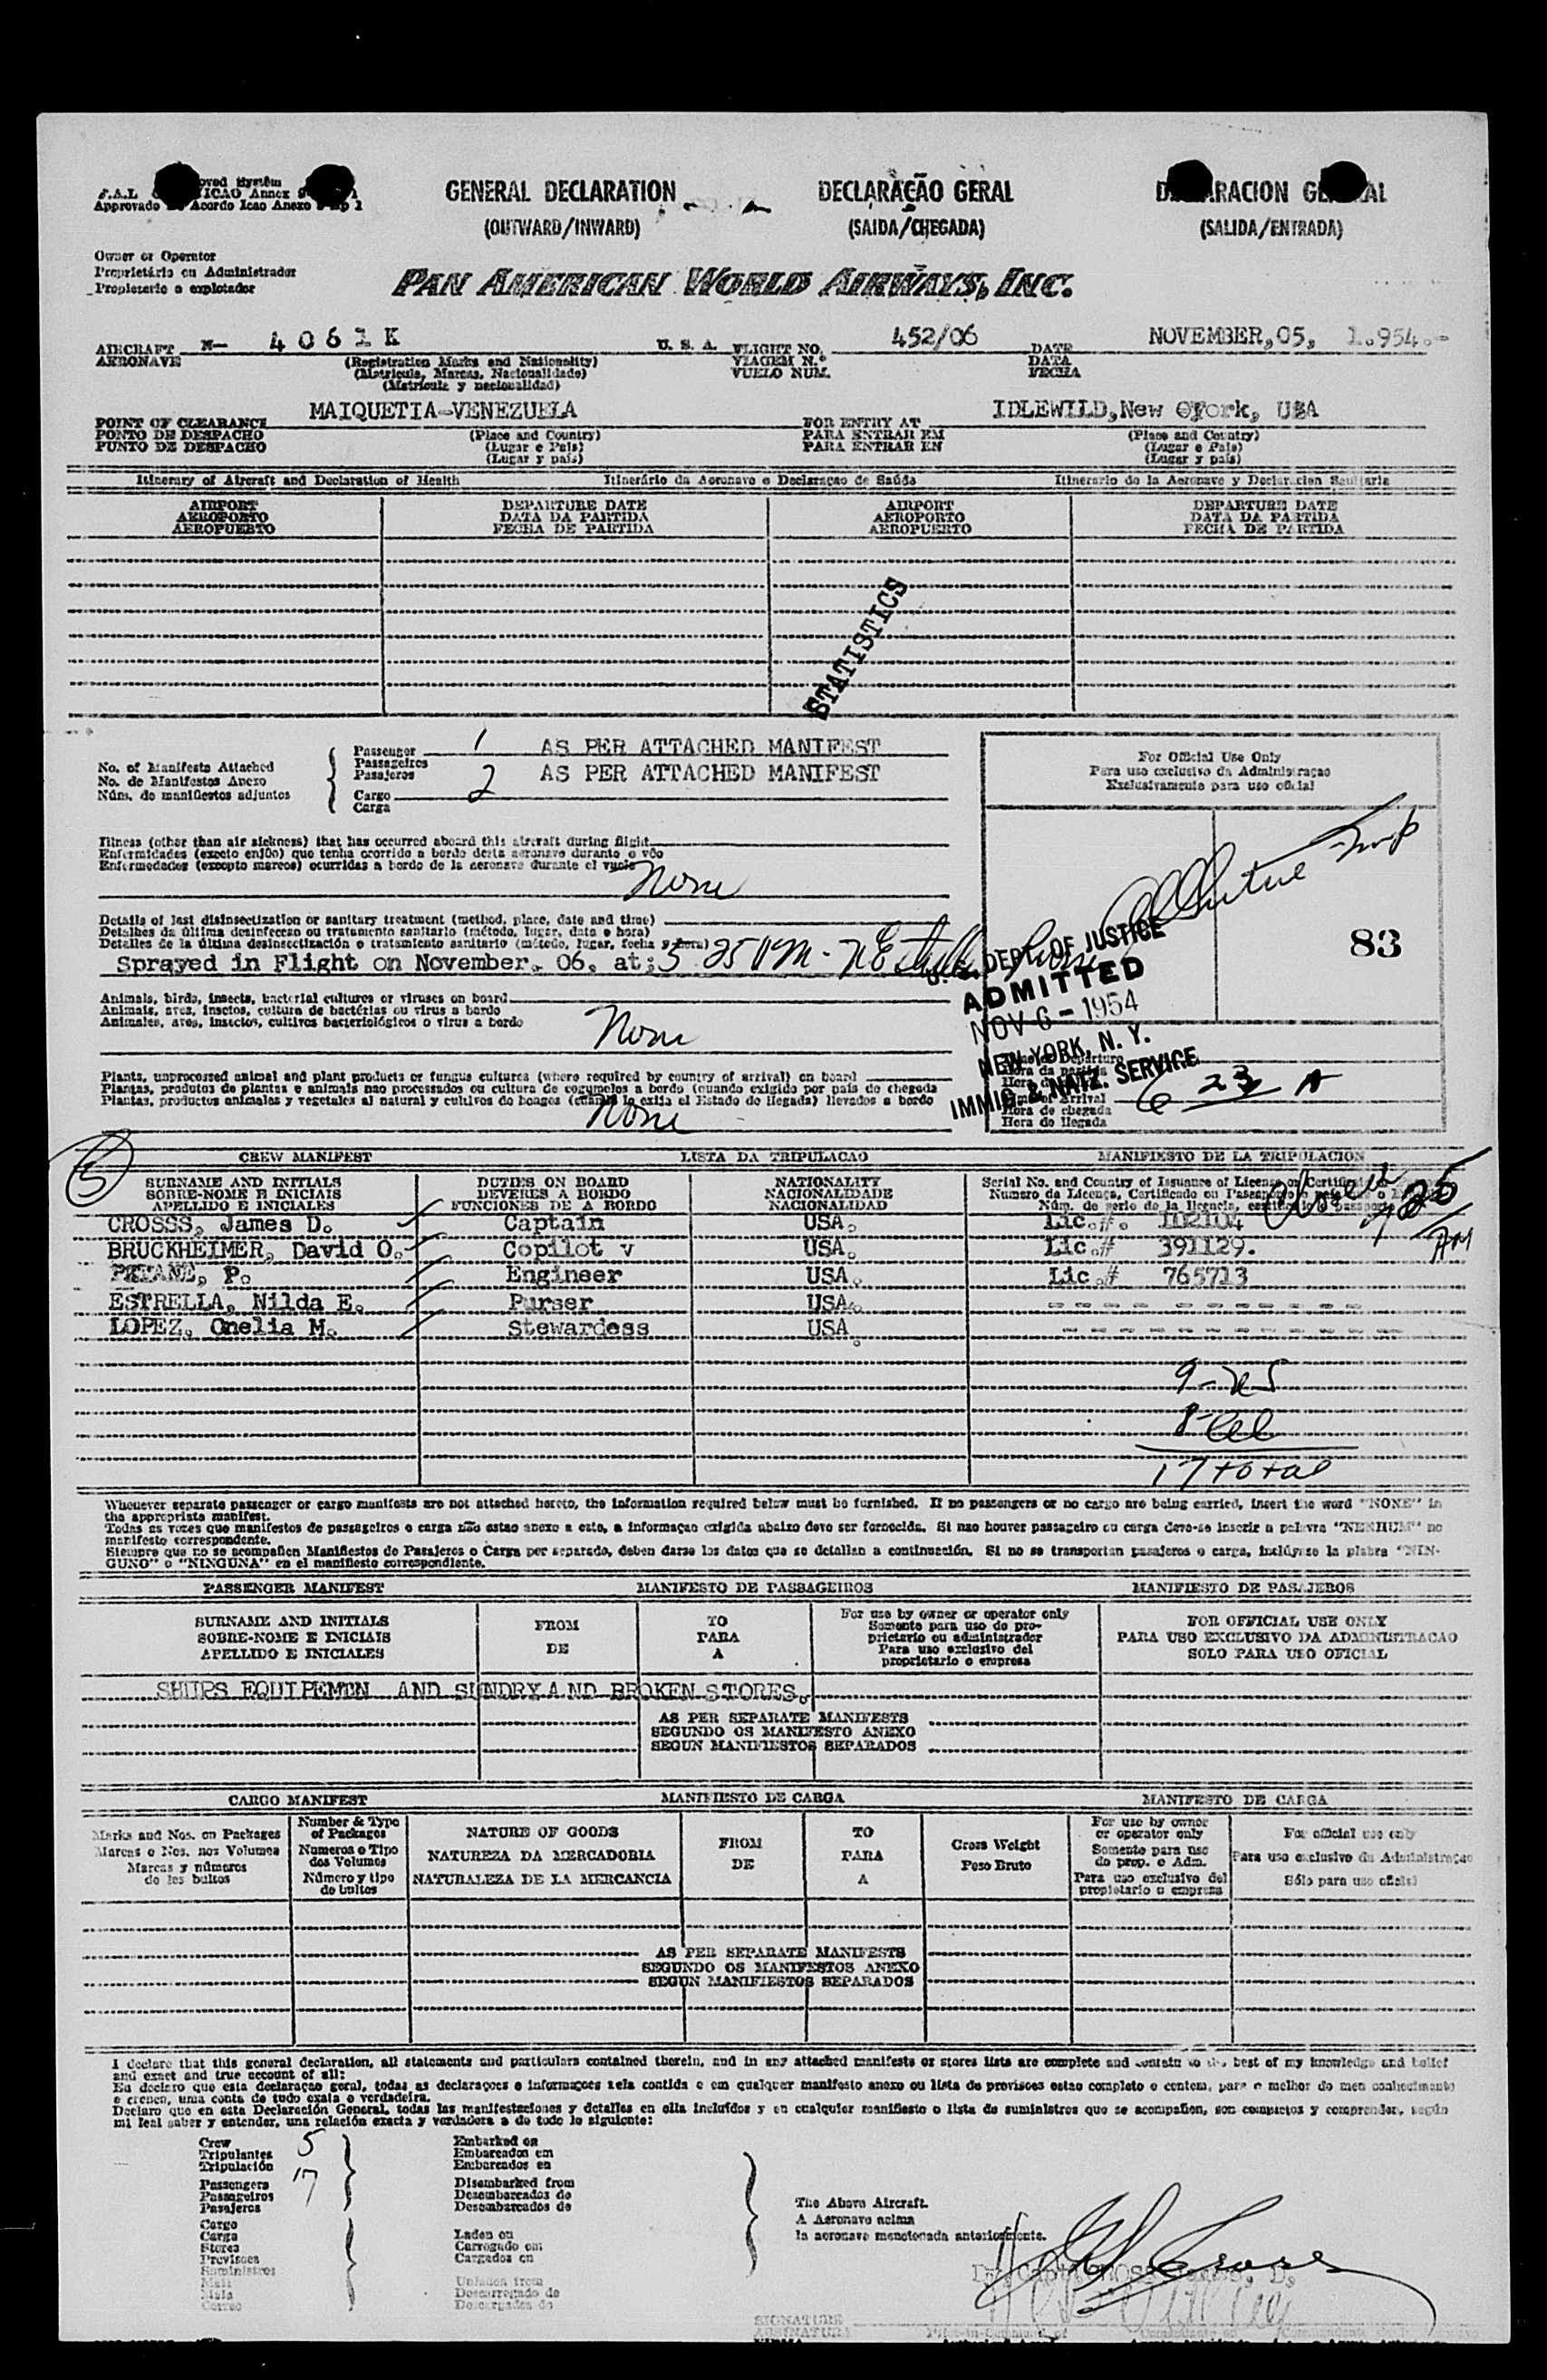 GENERAL DECLARATION
(OUTWARD/INWARD)
DECLARAÇÃO GERAL
(SAIDA/CHEGADA)
(SALIDA/ENTRADA)
F.A.L
ICAO Annex 9
Approvado Acordo Icao Anexo
Owner or Operator
Proprietário ou Administrador
Propietario o explotador
PAN AMERICAN WORLD AIRWAYS, INC.
AIRCRAFT N- 4061K U. S. A. FLIGHT NO. 452/06 DATE NOVEMBER,05, 1.954.-
AERONAVE (Registration Marks and Nationality) VIAGEM N.º DATA
(Matricula, Marcas, Nacionalidade) VUELO NUM. FECHA
(Matricula y nacionalidad)
POINT OF CLEARANCE MAIQUETIA-VENEZUELA FOR ENTRY AT IDLEWILD,New York, USA
PONTO DE DESPACHO (Place and Country) PARA ENTRAR EM (Place and Country)
PUNTO DE DESPACHO (Lugar e Pais) PARA ENTRAR EN (Lugar e Pais)
(Lugar y pais) (Lugar y pais)
Itinerary of Aircraft and Declaration of Health Itinerário da Aeronave e Declaraçao de Saúde Itinerario de la Aeronave y Declaracion Sanitaria
AIRPORT DEPARTURE DATE AIRPORT DEPARTURE DATE
AEROPORTO DATA DA PARTIDA AEROPORTO DATA DA PARTIDA
AEROPUERTO FECHA DE PARTIDA AEROPUERTO FECHA DE PARTIDA
STATISTICS
No. of Manifests Attached
No. de Manifestos Anexo
Núm. de manifiestos adjuntos
Passenger 1 AS PER ATTACHED MANIFEST
Passageiros
Pasajeros
Cargo 2 AS PER ATTACHED MANIFEST
Carga
For Official Use Only
Para uso exclusivo da Administraçao
Exclusivamente para uso oficial
83
Illness (other than air sickness) that has occurred aboard this aircraft during flight
Enfermidades (exceto enjôo) que tenha ocorrido a bordo desta aeronave durante o vôo
Enfermedades (excepto mareos) ocurridas a bordo de la aeronave durante el vuelo
None
Details of last disinsectization or sanitary treatment (method, place, date and time)
Detalhes da última desinfeccao ou tratamento sanitario (método, lugar, data e hora)
Detalles de la última desinsectización o tratamiento sanitario (método, lugar, fecha y hora)
Sprayed in Flight on November, 06, at: 5 25
U. S. DEPT. OF JUSTICE
ADMITTED
NOV 6 - 1954
NEW YORK, N. Y.
IMMIG. & NATZ. SERVICE
Animals, birds, insects, bacterial cultures or viruses on board
Animais, aves, insetos, cultura de bactérias ou virus a bordo
Animales, aves, insectos, cultivos bacteriológicos o virus a bordo
None
Plants, unprocessed animal and plant products or fungus cultures (where required by country of arrival) on board
Plantas, produtos de plantas e animais nao processados ou cultura de cogumelos a bordo (quando exigido por pais de chegada
Plantas, productos animales y vegetales al natural y cultivos de hongos (cuando lo exija el Estado de llegada) llevados a bordo
None
Hora de chegada
Hora de llegada
6 23 A
5
CREW MANIFEST LISTA DA TRIPULACAO MANIFIESTO DE LA TRIPULACION
SURNAME AND INITIALS DUTIES ON BOARD NATIONALITY Serial No. and Country of Issuance of License or
SOBRE-NOME E INICIAIS DEVERES A BORDO NACIONALIDADE Numero da Licença, Certificado ou
APELLIDO E INICIALES FUNCIONES DE A BORDO NACIONALIDAD Núm. de serie de la licencia,
725 AM
CROSSS, James D. Captain USA. Lic.#. 102104
BRUCKHEIMER, David O. Copilot USA. Lic.# 391129.
P. Engineer USA. Lic.# 765713
ESTRELLA, Nilda E. Purser USA. - - - - - - - - - -
LOPEZ, Onelia M. Stewardess USA. - - - - - - - - - -
9-US
8-al
17 total
Whenever separate passenger or cargo manifests are not attached hereto, the information required below must be furnished. If no passengers or no cargo are being carried, insert the word "NONE" in
the appropriate manifest.
Todas as vezes que manifestos de passageiros e carga não estao anexo a este, a informaçao exigida abaixo deve ser fornecida. Si nao houver passageiro ou carga deve-se inserir a palavra "NENHUM" no
manifesto correspondente.
Siempre que no se acompañen Manifiestos de Pasajeros o Carga por separado, deben darse los datos que se detallan a continuación. Si no se transportan pasajeros o carga, inclúyase la plabra "NIN-
GUNO" o "NINGUNA" en el manifiesto correspondiente.
PASSENGER MANIFEST MANIFESTO DE PASSAGEIROS MANIFIESTO DE PASAJEROS
SURNAME AND INITIALS FROM TO For use by owner or operator only FOR OFFICIAL USE ONLY
SOBRE-NOME E INICIAIS DE PARA Somente para uso do pro- PARA USO EXCLUSIVO DA ADMINISTRACAO
APELLIDO E INICIALES A prietario ou administrador SOLO PARA USO OFICIAL
Para uso exclusivo del
proprietario o empresa
SHIPS EQUIPEMEN AND SUNDRY AND BROKEN STORES.
AS PER SEPARATE MANIFESTS
SEGUNDO OS MANIFESTO ANEXO
SEGUN MANIFIESTOS SEPARADOS
CARGO MANIFEST MANIFIESTO DE CARGA MANIFESTO DE CARGA
Marks and Nos. on Packages Number & Type of Packages NATURE OF GOODS FROM TO Gross Weight For use by owner or operator only For official use only
Marcas e Nos. nos Volumes Numeros e Tipo dos Volumes NATUREZA DA MERCADORIA DE PARA Peso Bruto Somente para uso do prop. e Adm. Para uso exclusivo da Administraçao
Marcas y números de los bultos Número y tipo de bultos NATURALEZA DE LA MERCANCIA A Para uso exclusivo del propietario o empresa Sólo para uso oficial
AS PER SEPARATE MANIFESTS
SEGUNDO OS MANIFESTOS ANEXO
SEGUN MANIFIESTOS SEPARADOS
I declare that this general declaration, all statements and particulars contained therein, and in any attached manifests or stores lists are complete and contain to the best of my knowledge and belief
and exact and true account of all:
Eu declaro que esta declaraçao geral, todas as declaraçoes e informaçoes nela contida e em qualquer manifesto anexo ou lista de provisoes estao completo e contem, para o melhor do meu conhecimento
e crença, uma conta de tudo exata e verdadeira.
Declaro que en esta Declaración General, todas las manifestaciones y detalles en ella incluídos y en cualquier manifiesto o lista de suministros que se acompañen, son completos y comprenden, según
mi leal saber y entender, una relación exacta y verdadera a de todo lo siguiente:
Crew 5 Embarked on
Tripulantes Embarcados em
Tripulación Embarcados en
Passengers 17 Disembarked from
Passageiros Desembarcados de
Pasajeros Desembarcados de
The Above Aircraft.
A Aeronave acima
la aeronave mencionada anteriormente.
Cargo
Carga
Stores Laden on
Provisoes Carregado em
Suministros Cargados en
Mail Unladen from
Mala Descarregado de
Correo Descargados de
SIGNATURE
ASSINATURA